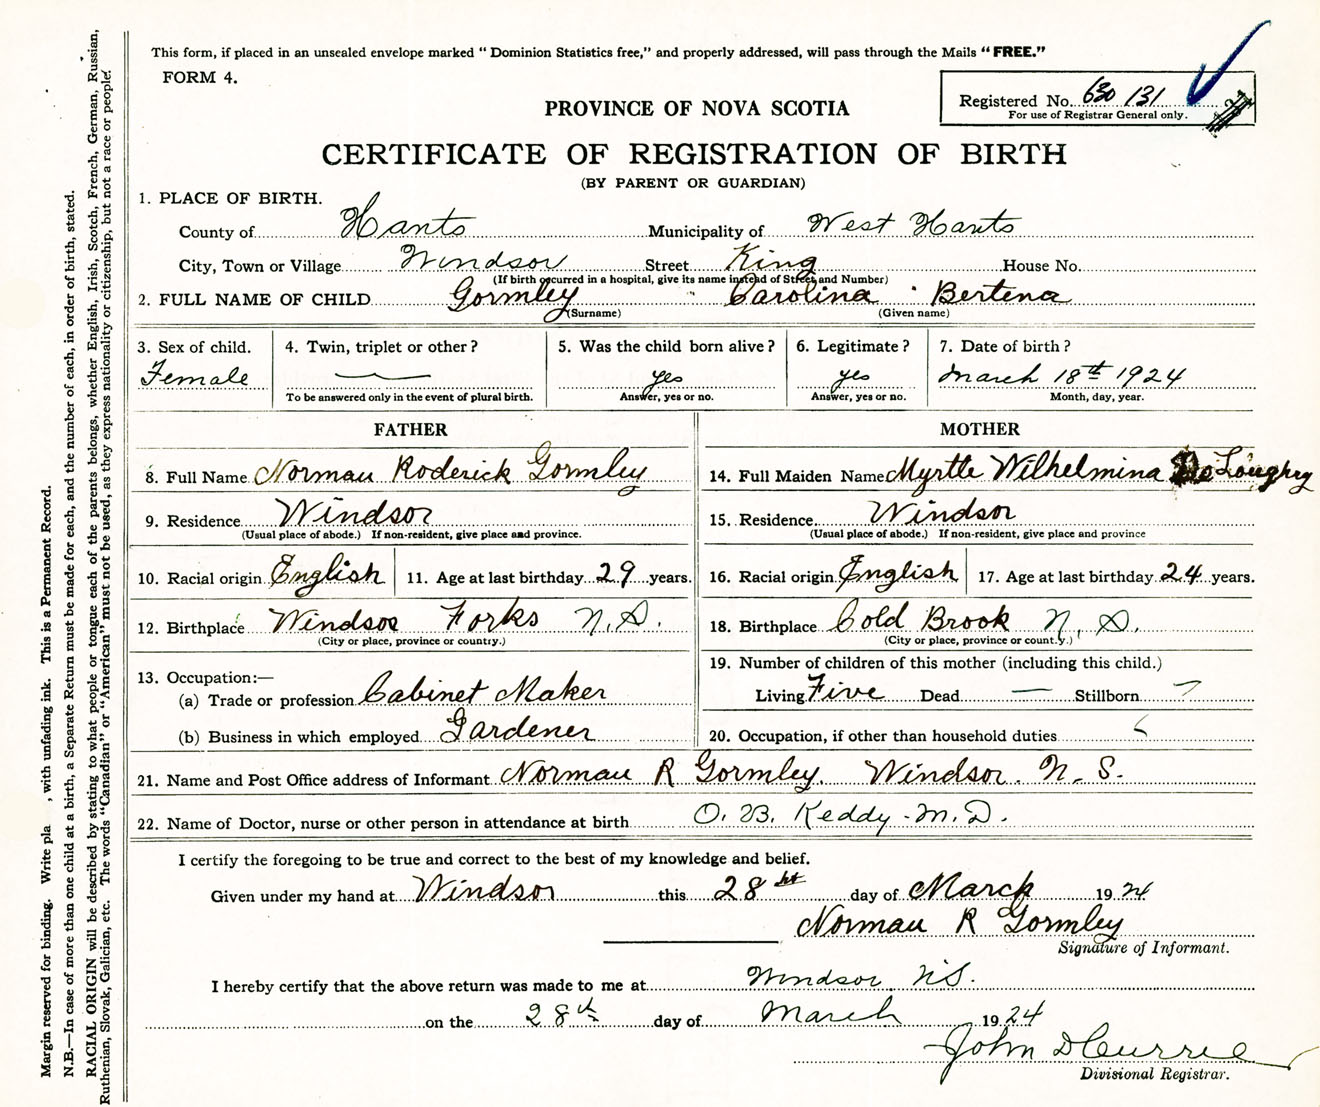 This form, if placed in an unsealed envelope marked “ Dominion Statistics free,” and properly addressed, will pass through the Mails “ FREE.”
FORM 4.
Registered No. 630 131
For use of Registrar General only.
PROVINCE OF NOVA SCOTIA
CERTIFICATE OF REGISTRATION OF BIRTH
(BY PARENT OR GUARDIAN)
1. PLACE OF BIRTH.
County of Hants Municipality of West Hants
City, Town or Village Windsor Street King House No.
(If birth occurred in a hospital, give its name instead of Street and Number)
2. FULL NAME OF CHILD Gormley " Carolina Bertena
(Surname) (Given name)
3. Sex of child. 4. Twin, triplet or other? 5. Was the child born alive? 6. Legitimate? 7. Date of birth?
Female — yes yes March 18th 1924
To be answered only in the event of plural birth. Answer, yes or no. Answer, yes or no. Month, day, year.
FATHER
8. Full Name Norman Roderick Gormley
9. Residence Windsor
(Usual place of abode.) If non-resident, give place and province.
10. Racial origin English 11. Age at last birthday 29 years.
12. Birthplace Windsor Forks N.S.
(City or place, province or country.)
13. Occupation:—
(a) Trade or profession Cabinet Maker
(b) Business in which employed Gardener
MOTHER
14. Full Maiden Name Myrtle Wilhelmina DeLoughry
15. Residence. Windsor
(Usual place of abode.) If non-resident, give place and province
16. Racial origin English 17. Age at last birthday 24 years.
18. Birthplace Cold Brook N. S.
(City or place, province or country.)
19. Number of children of this mother (including this child.)
Living Five Dead — Stillborn
20. Occupation, if other than household duties
21. Name and Post Office address of Informant Norman R Gormley. Windsor. N. S.
22. Name of Doctor, nurse or other person in attendance at birth O. B. Keddy - M.D.
I certify the foregoing to be true and correct to the best of my knowledge and belief.
Given under my hand at Windsor this 28 day of March 1924
Norman R Gormley
Signature of Informant.
I hereby certify that the above return was made to me at Windsor N.S.
on the 28th day of March 1924
John D Currie
Divisional Registrar.
Margin reserved for binding. Write pla , with unfading ink. This is a Permanent Record.
N.B.—In case of more than one child at a birth, a Separate Return must be made for each, and the number of each, in order of birth, stated.
RACIAL ORIGIN will be described by stating to what people or tongue each of the parents belongs, whether English, Irish, Scotch, French, German, Russian,
Ruthenian, Slovak, Galician, etc. The words “Canadian” or “American” must not be used, as they express nationality or citizenship, but not a race or people.